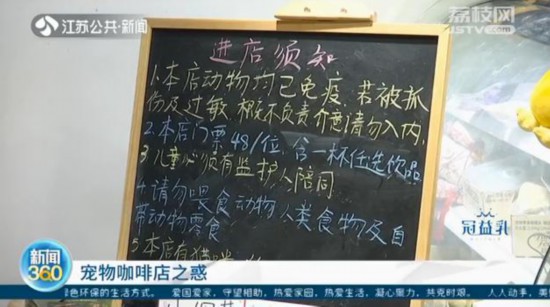 江苏公共·新闻
荔枝网
JSTV.COM
进店须知
1.本店动物均已免疫,若被抓
伤及过敏,概不负责,介意请勿入内,
2.本店门票48/位,含一杯任选饮品
3.儿童必须有监护人陪同
4.请勿喂食动物人类食物及自
带动物零食
5.本店有猫咪
冠益乳
新闻
360
宠物咖啡店之惑
绿色环保的生活方式。 爱国爱家,守望相助,热爱家园,热爱生活,凝心聚力,共克时艰。 人人动手,美